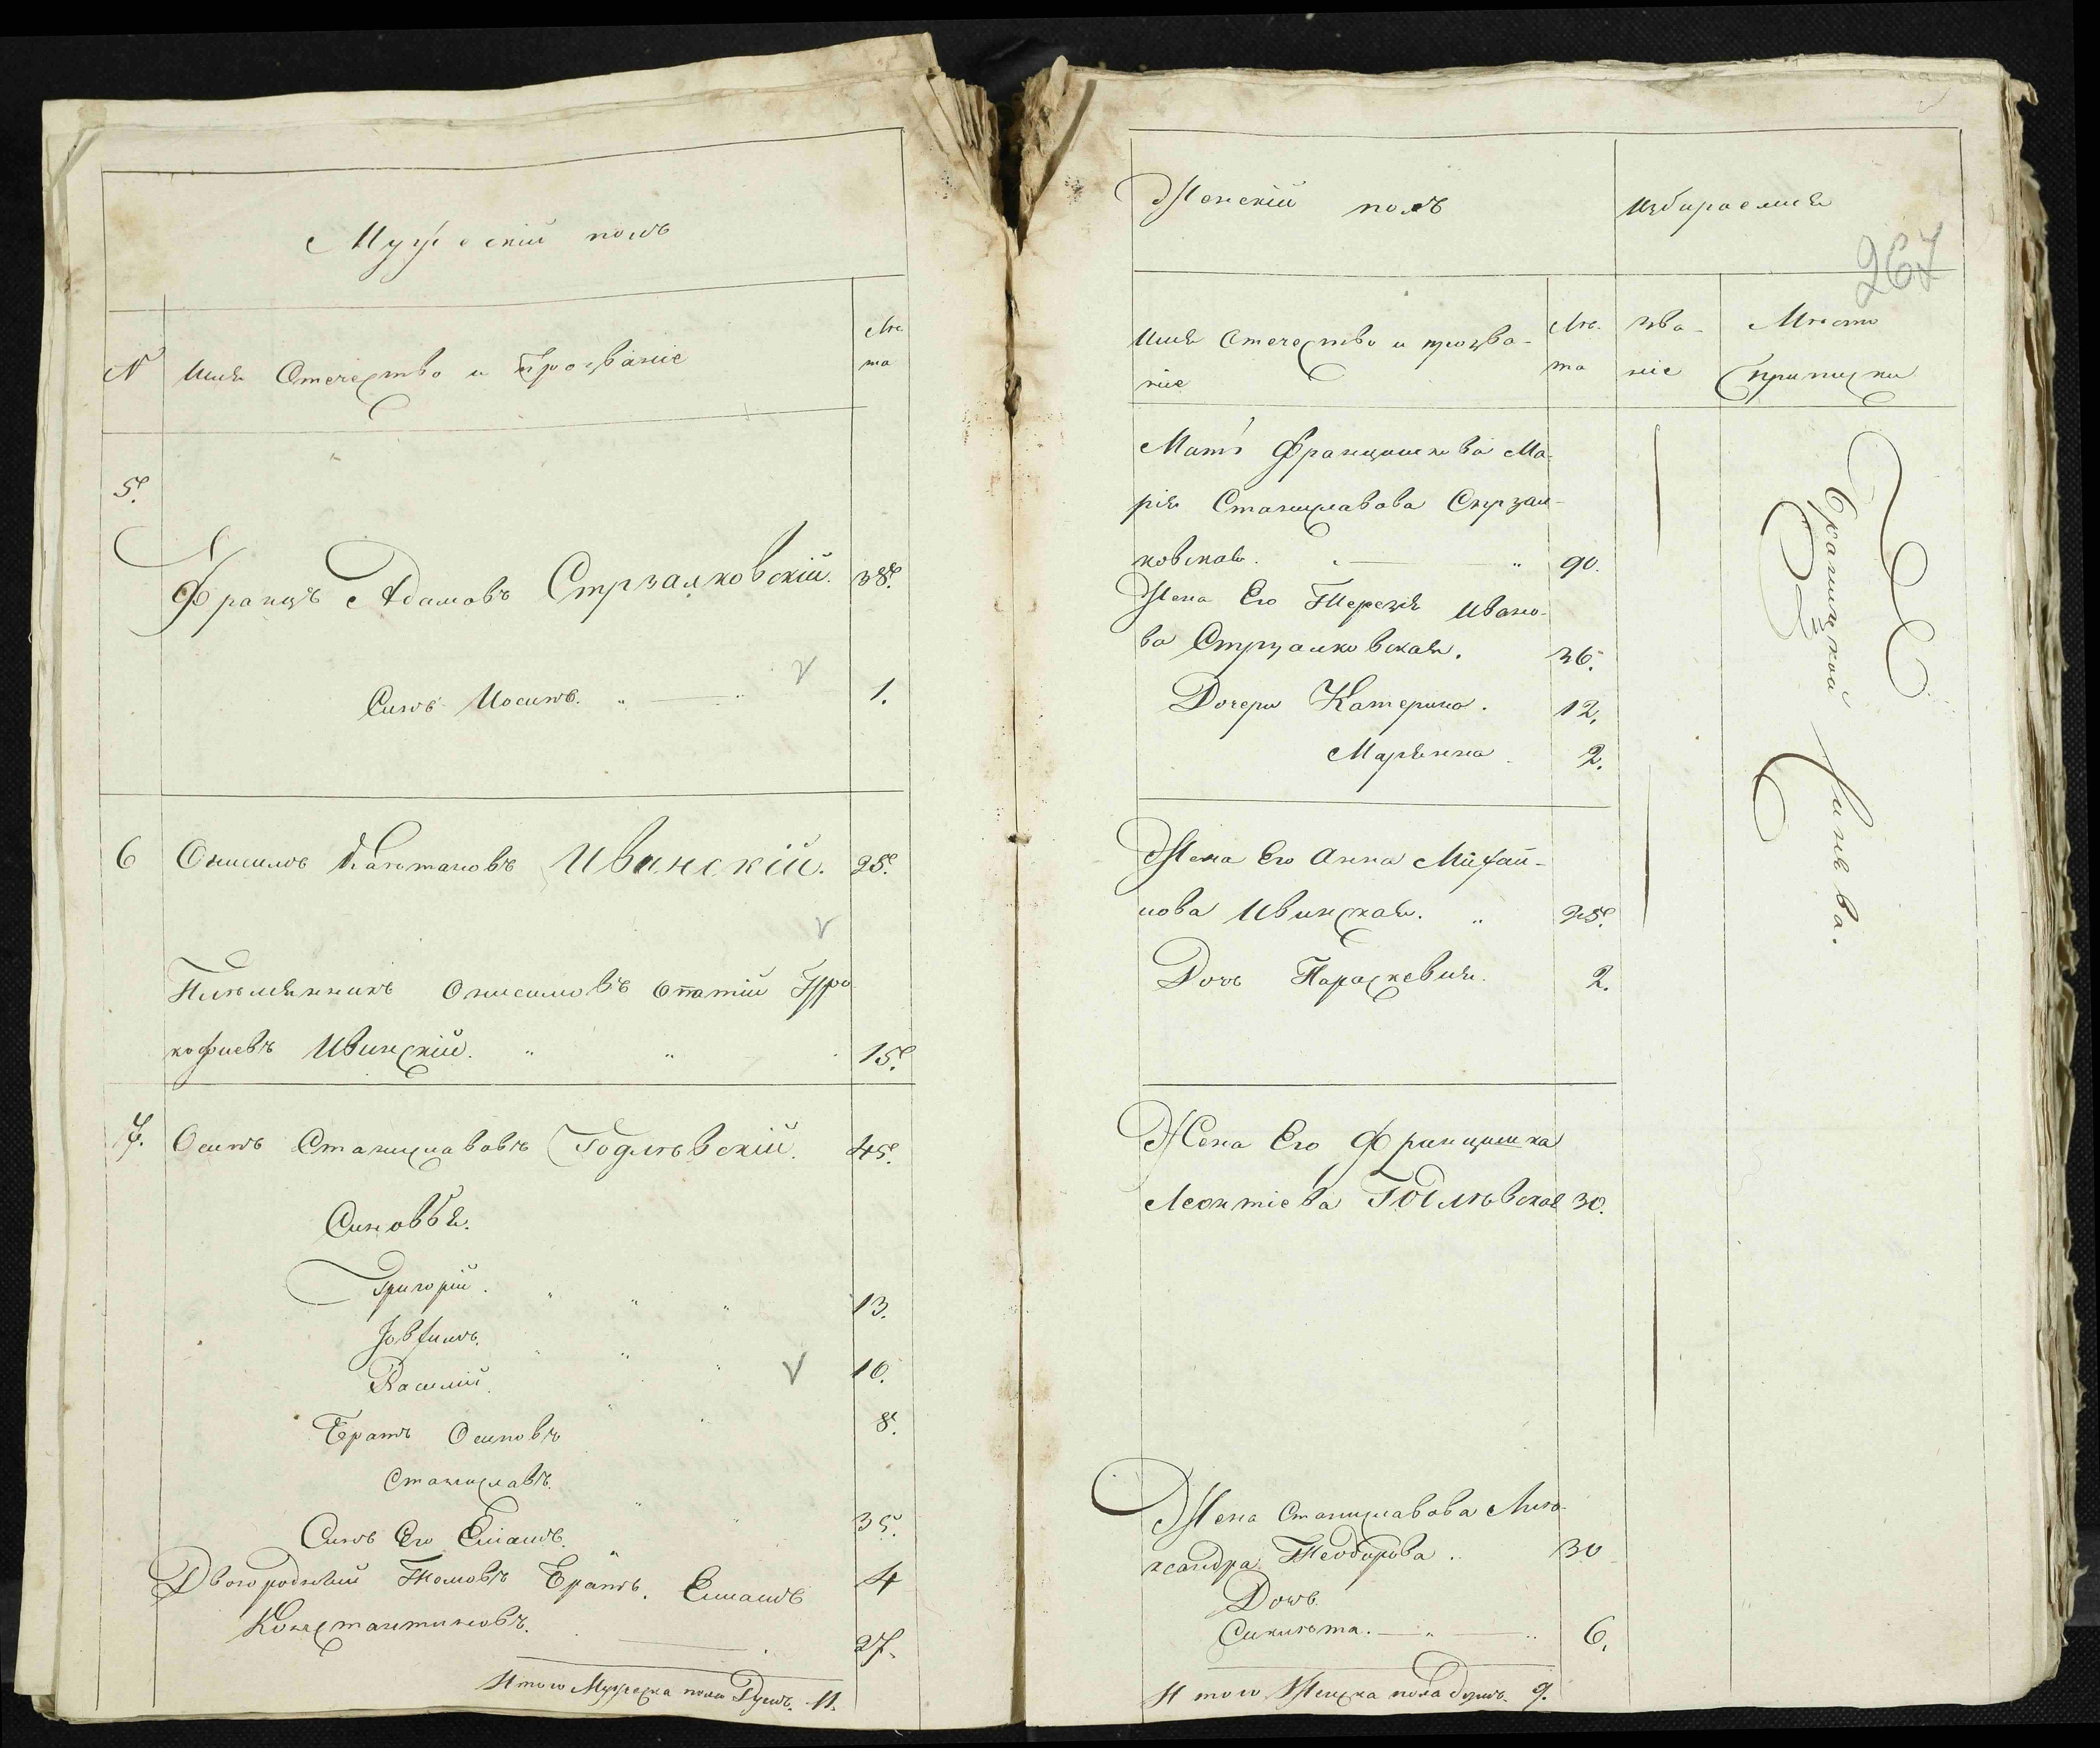 Мужескій полъ
№ Имя Отечество и Прозваніе Лѣ
та
5.
Францъ Адамовъ Стрзалковскій. 38.
Сынъ Иосипъ. 1.
6 Онисимъ Каэтановъ Ивинскій. 25.
Пилемянникъ Онисимовъ Про
кофиевъ Ивинскій. 15.
7. Осипъ Станиславовъ Годлѣвскій. 45.
Синовья.
Григорій. 13.
Іовхимъ. 10.
Василій. 8.
Братъ Осиповъ
Станиславъ. 35.
Синъ Его 4
Двоюродный Братъ.
Константиновъ. 27.
Итого Мужеска пола Душъ. 11.
Женскій полъ Избираемия
267
Имя Отечество и прозва- Лѣ- зва- Мѣсто
ніе та ніе приписки
Мать Францишкова Ма-
рія Станиславова Стрзал-
ковская. 90.
Жена Его Терезія Ивано-
ва Стрзалковская. 36.
Дочери Катерина. 12.
Марянна 2.
Жена Его Анна Михай-
лова Ивинская. 25.
Дочь Параскевия. 2.
Жена Его Францишка
Леонтіева Годлѣвская 30.
Жена Станиславова Алѣ-
ксандра Теодорова. 30
Дочь
6.
Итого Женска пола душъ. 9.